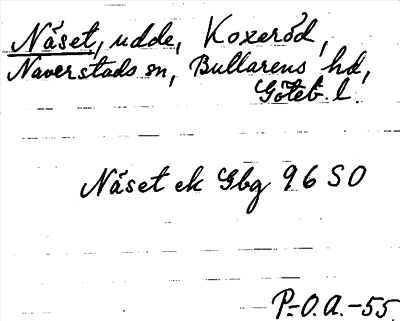 Näset, udde, Koxeröd,
Naverstads sn, Bullarens hd,
Göteb. l.
Näset ek Gbg 96 SO
P.-O.A.-55.